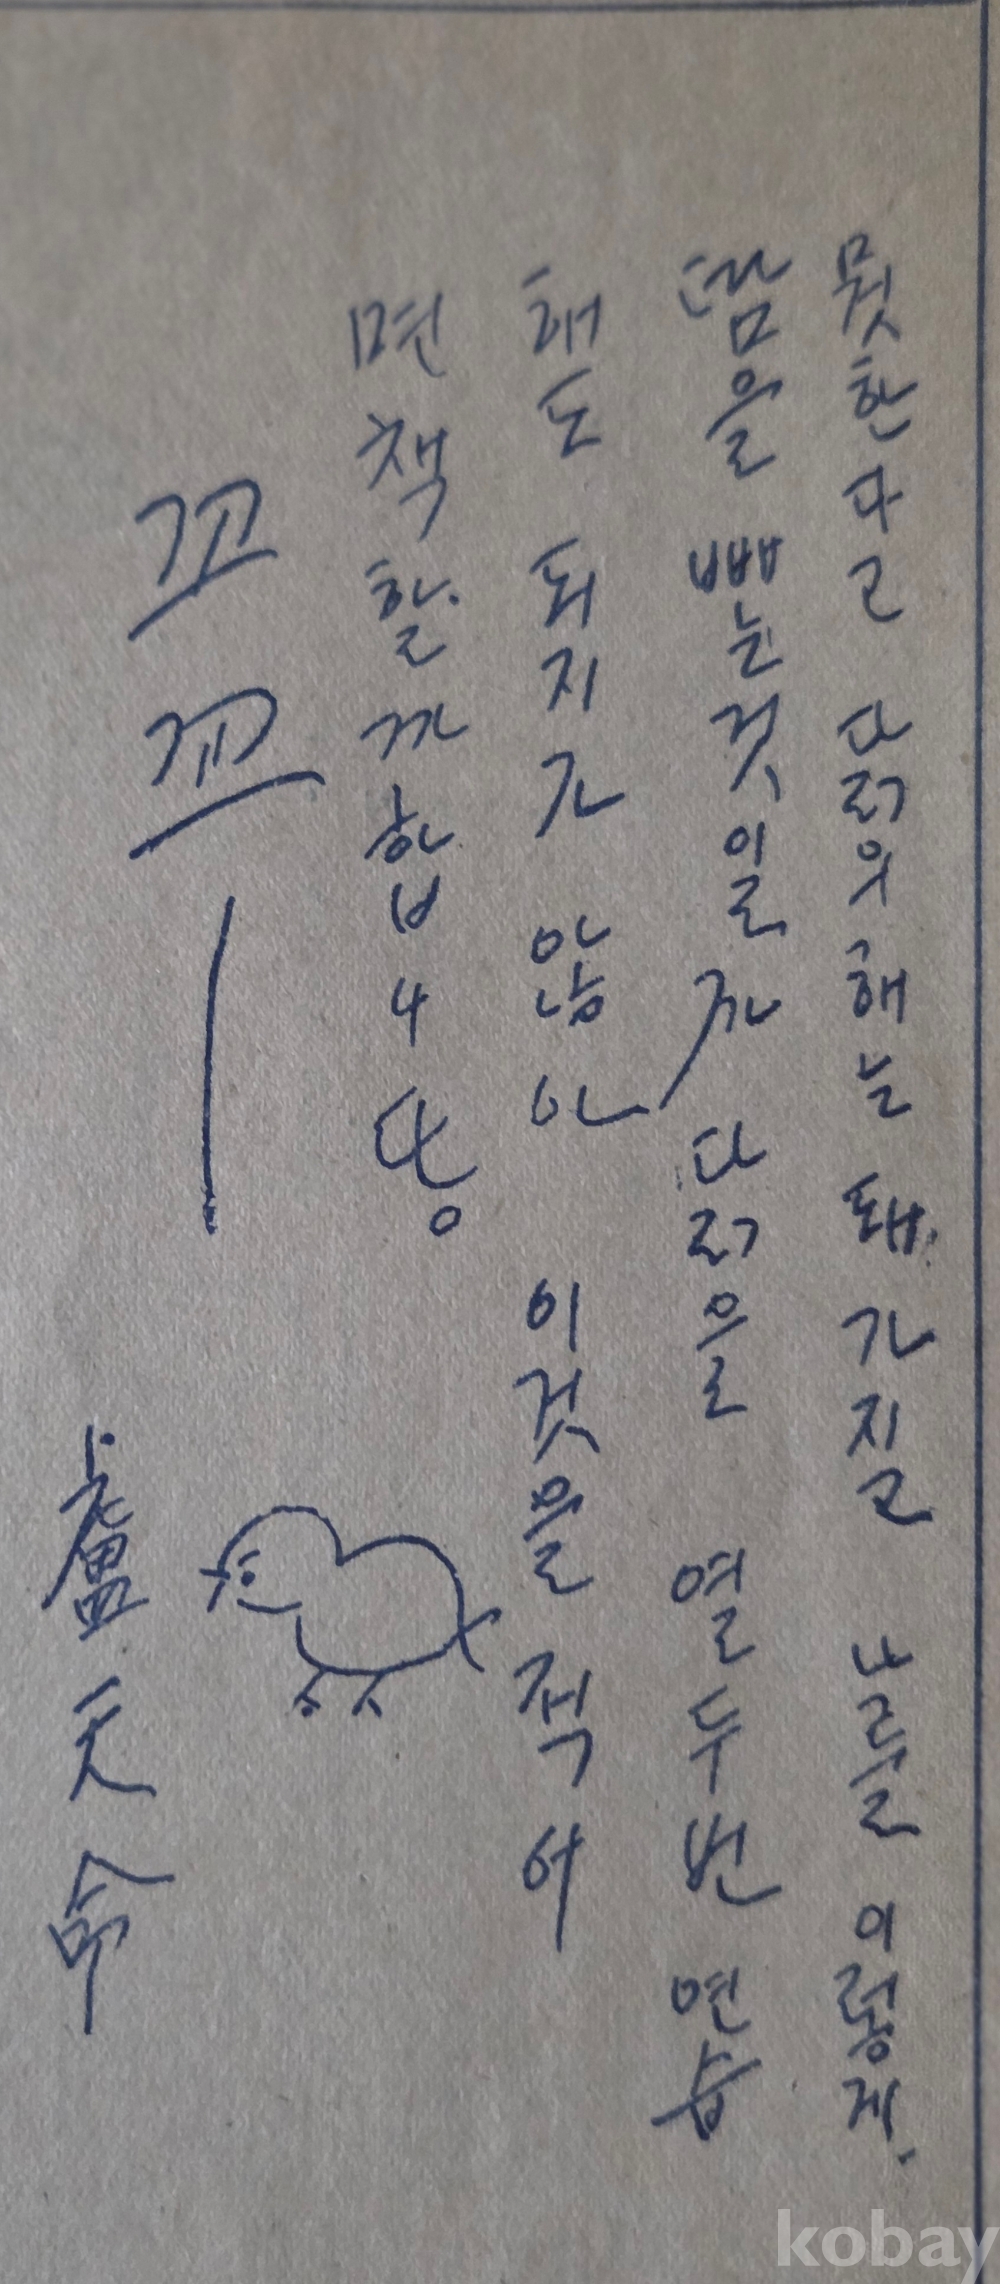 못한다고 닭의 해는 돼 가지고 나를 이렇게
땀을 빼는 것일까 닭을 열두번 연습
해도 되지가 않아 이것을 적어
면책할까 합니다
꼬꼬ㅣ
盧天命
kobay